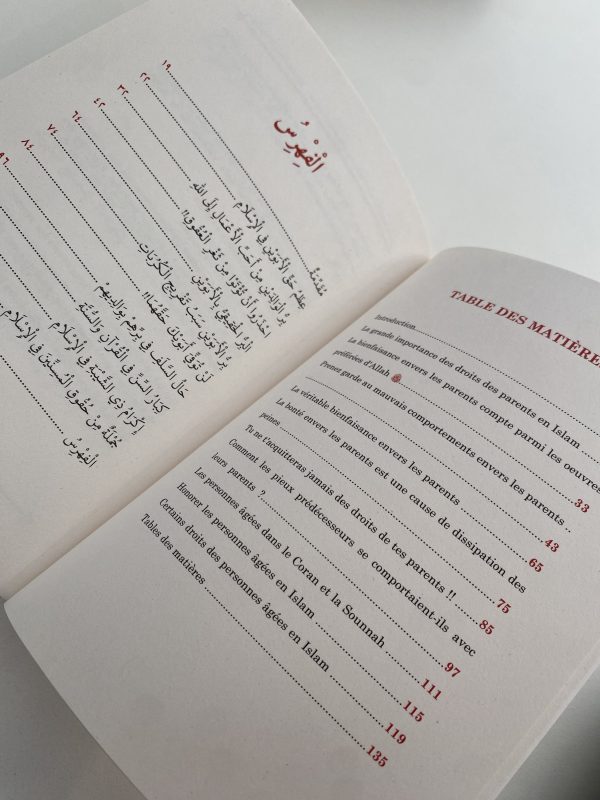 الْفِهْرِسُ
مُقَدِّمَةٌ ١٩
عِظَمُ حَقِّ الْأَبَوَيْنِ فِي الْإِسْلَامِ ٢٢
بِرُّ الْوَالِدَيْنِ مِنْ أَحَبِّ الْأَعْمَالِ إِلَى اللهِ ٣٢
احْذَرُوا أَنْ تُؤْتَوْا مِنْ ثَغْرِ الْعُقُوقِ!! ٤٢
الْبِرُّ الْحَقِيقِيُّ بِالْأَبَوَيْنِ ٦٤
بِرُّ الْأَبَوَيْنِ سَبَبُ تَفْرِيجِ الْكُرُبَاتِ ٧٤
لَنْ تُوَفِّيَ أَبَوَيْكَ حَقَّهُمَا!! ٨٤
حَالُ السَّلَفِ فِي بِرِّهِمْ بِوَالِدِيهِمْ ٩٦
كِبَارُ السِّنِّ فِي الْقُرْآنِ وَالسُّنَّةِ
إِكْرَامُ ذِي الشَّيْبَةِ فِي الْإِسْلَامِ
جُمْلَةٌ مِنْ حُقُوقِ الْمُسِنِّينَ فِي الْإِسْلَامِ
الْفِهْرِسُ
TABLE DES MATIÈRE
Introduction
La grande importance des droits des parents en Islam
La bienfaisance envers les parents compte parmi les oeuvres
préférées d'Allah 33
Prenez garde au mauvais comportements envers les parents .. 43
La véritable bienfaisance envers les parents 65
La bonté envers les parents est une cause de dissipation des
peines 75
Tu ne t'acquitteras jamais des droits de tes parents !! 85
Comment les pieux prédécesseurs se comportaient-ils avec
leurs parents ? 97
Les personnes âgées dans le Coran et la Sounnah 111
Honorer les personnes âgées en Islam 115
Certains droits des personnes âgées en Islam 119
Tables des matières 135